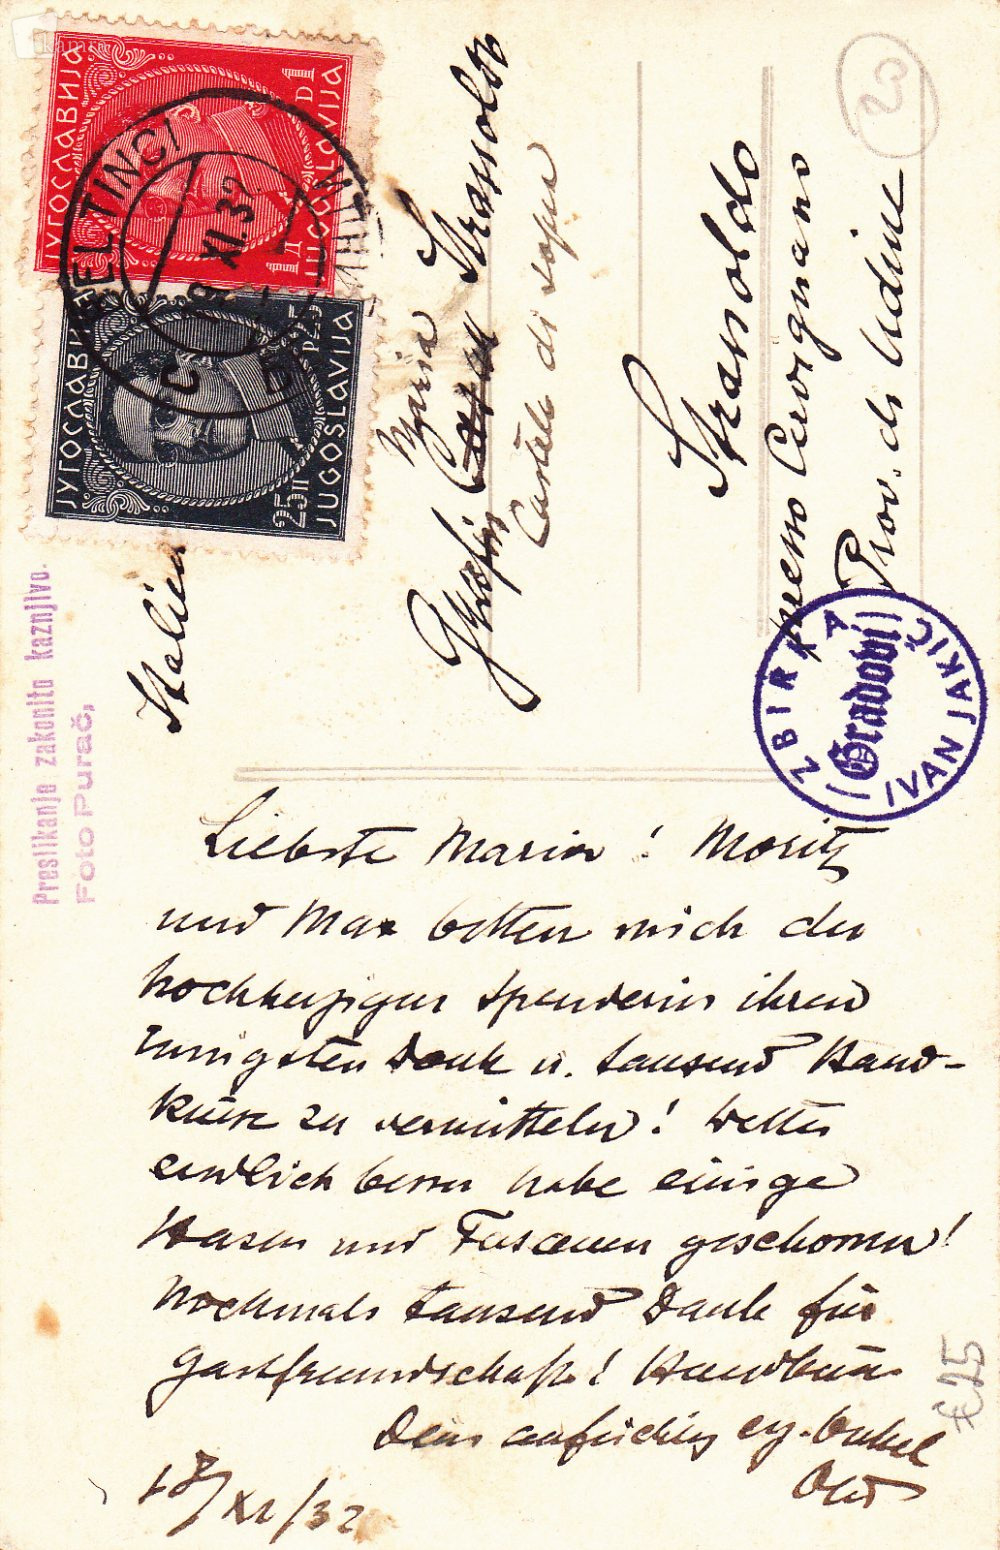 ЈУГОСЛАВИЈА
1 Д
D 1
JUGOSLAVIJA
ЈУГОСЛАВИЈА
25 П
P 25
JUGOSLAVIJA
BELTINCI
19 XI. 32
Italien
Gräfin
Maria Strassoldo
Castello di sopra
Strassoldo
presso Cervignano
Prov. di Udine
Preslikanje zakonito kaznjivo.
Foto Purač,
ZBIRKA
Gradovi
IVAN JAKIĆ
23
Liebste Maria! Moritz
und Max bitten mich der
hochherzigen Spenderin ihren
innigsten Dank u. tausend Hand-
küsse zu vermitteln! Wetter
endlich besser habe einige
Hasen und Fasanen geschossen!
Nochmals tausend Dank für
Gastfreundschaft! Handkuss
Dein aufrichtig Onkel
18/XI/32
€25